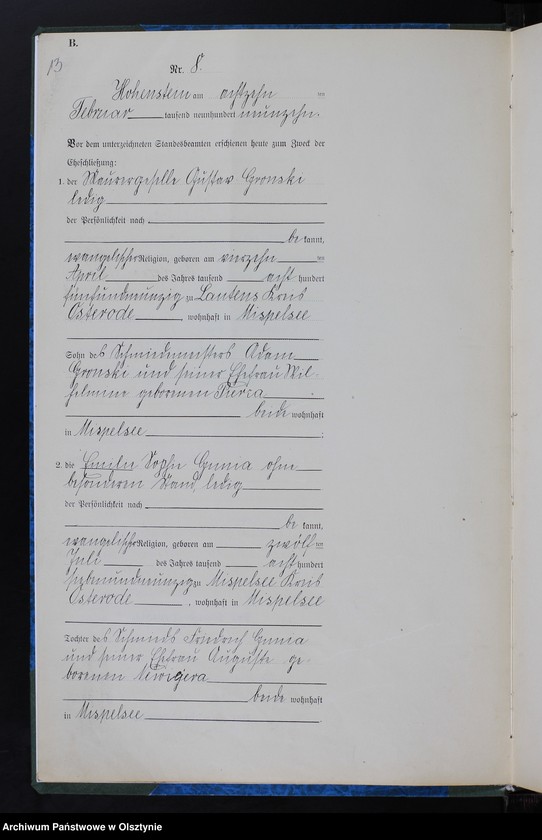 B.
13
Nr. 8.
Hohenstein am achtzehn ten
Februar tausend neunhundert neunzehn.
Vor dem unterzeichneten Standesbeamten erschienen heute zum Zweck der
Eheschließung:
1. der Maurergeselle Gustav Gronske
ledig
der Persönlichkeit nach
be kannt,
evangelischer Religion, geboren am vierzehn ten
April des Jahres tausend acht hundert
fünfundneunzig zu Lautens Kreis
Osterode, wohnhaft in Mispelsee
Sohn des Schmiedemeisters Adam
Gronski und seiner Ehefrau Wil-
helmine geborenen
beide wohnhaft
in Mispelsee;
2. die Emilie Sophie Gunia ohne
besonderen Stand, ledig
der Persönlichkeit nach
be kannt,
evangelischer Religion, geboren am zwölf ten
Juli des Jahres tausend acht hundert
siebenundneunzig zu Mispelsee Kreis
Osterode, wohnhaft in Mispelsee
Tochter des Schmieds Friedrich Gunia
und seiner Ehefrau Auguste ge-
borenen
beide wohnhaft
in Mispelsee.
Archiwum Państwowe w Olsztynie